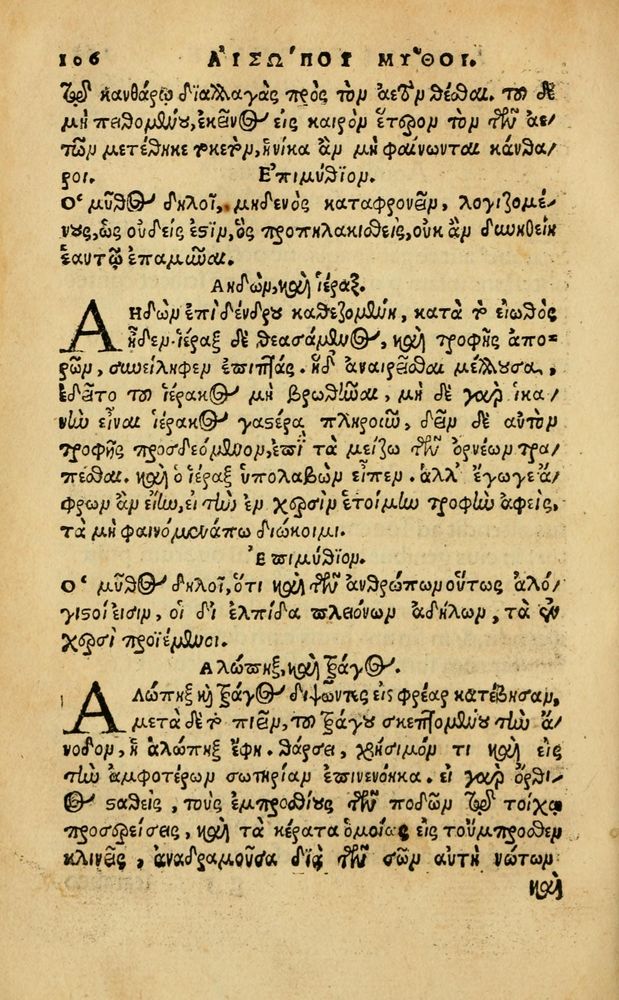 106 ΑΙΣΩΠΟΥ ΜΥΘΟΙ.
τῷ κανθάρῳ διαλλαγὰς πρὸς τὸν ἀετὸν θέσθαι. τοῦ δὲ
μὴ πειθομένου, ἐκεῖνος εἰς καιρὸν ἕτερον τὸν τῶν ἀε-
τῶν μετέθηκε τοκετὸν, ἡνίκα ἂν μὴ φαίνωνται κάνθα-
ροι. Ἐπιμύθιον.
Ὁ μῦθος δηλοῖ, μηδενὸς καταφρονεῖν, λογιζομέ-
νους, ὡς οὐδείς ἐστιν, ὃς προπηλακισθεὶς, οὐκ ἂν δυνηθείη
ἑαυτῷ ἐπαμῦναι.
Ἀηδὼν, καὶ ἱέραξ.
ΑΗδὼν ἐπὶ δένδρου καθεζομένη, κατὰ τὸ εἰωθὸς
ᾖδεν. ἱέραξ δὲ θεασάμενος, καὶ τροφῆς ἀπο-
ρῶν, συνείληφεν ἐπιπτάς. ἡ δ' ἀναιρεῖσθαι μέλλουσα,
ἐδεῖτο τοῦ ἱέρακος μὴ βρωθῆναι, μὴ δὲ γὰρ ἱκα-
νὴν εἶναι ἱέρακος γαστέρα πληροῦν, δεῖν δὲ αὐτὸν
τροφῆς προσδεόμενον, ἐπὶ τὰ μείζω τῶν ὀρνέων τρα-
πέσθαι. καὶ ὁ ἱέραξ ὑπολαβὼν εἶπεν. ἀλλ' ἔγωγε ἄ-
φρων ἂν εἴην, εἰ τὴν ἐν χερσὶν ἑτοίμην τροφὴν ἀφεὶς,
τὰ μὴ φαινόμενά πω διώκοιμι.
Ἐπιμύθιον.
Ὁ μῦθος δηλοῖ, ὅτι καὶ τῶν ἀνθρώπων οὕτως ἀλό-
γιστοί εἰσιν, οἱ δι' ἐλπίδα πλειόνων ἀδήλων, τὰ ἐν
χερσὶ προϊέμενοι.
Ἀλώπηξ, καὶ τράγος.
ΑΛώπηξ καὶ τράγος διψῶντες εἰς φρέαρ κατέβησαν,
μετὰ δὲ τὸ πιεῖν, τοῦ τράγου σκεπτομένου τὴν ἄ-
νοδον, ἡ ἀλώπηξ ἔφη. θάρσει, χρήσιμόν τι καὶ εἰς
τὴν ἀμφοτέρων σωτηρίαν ἐπινενόηκα. εἰ γὰρ ὄρθι-
ος σταθεὶς, τοὺς ἐμπροσθίους τῶν ποδῶν τῷ τοίχῳ
προσερείσεις, καὶ τὰ κέρατα ὁμοίως εἰς τοὔμπροσθεν
κλινεῖς, ἀναδραμοῦσα διὰ τῶν σῶν αὐτὴ νώτων
καὶ